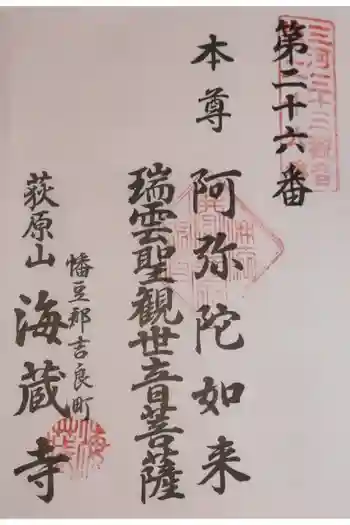 第二十六番
三河三十三観音
本尊 阿弥陀如来
瑞雲聖観世音菩薩
幡豆郡吉良町
荻原山 海蔵寺